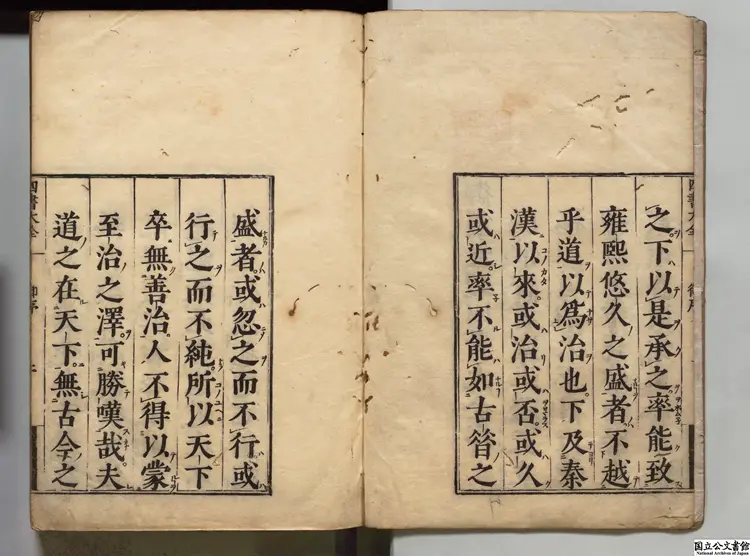 之下以是承之率能致
雍熙悠久之盛者不越
乎道以為治也下及秦
漢以來或治或否或久
或近率不能如古昔之
盛者或忽之而不行或
行之而不純所以天下
卒無善治人不得以蒙
至治之澤可勝嘆哉夫
道之在天下無古今之
四書大全
御序
四書大全
御序
国立公文書館
National Archives of Japan